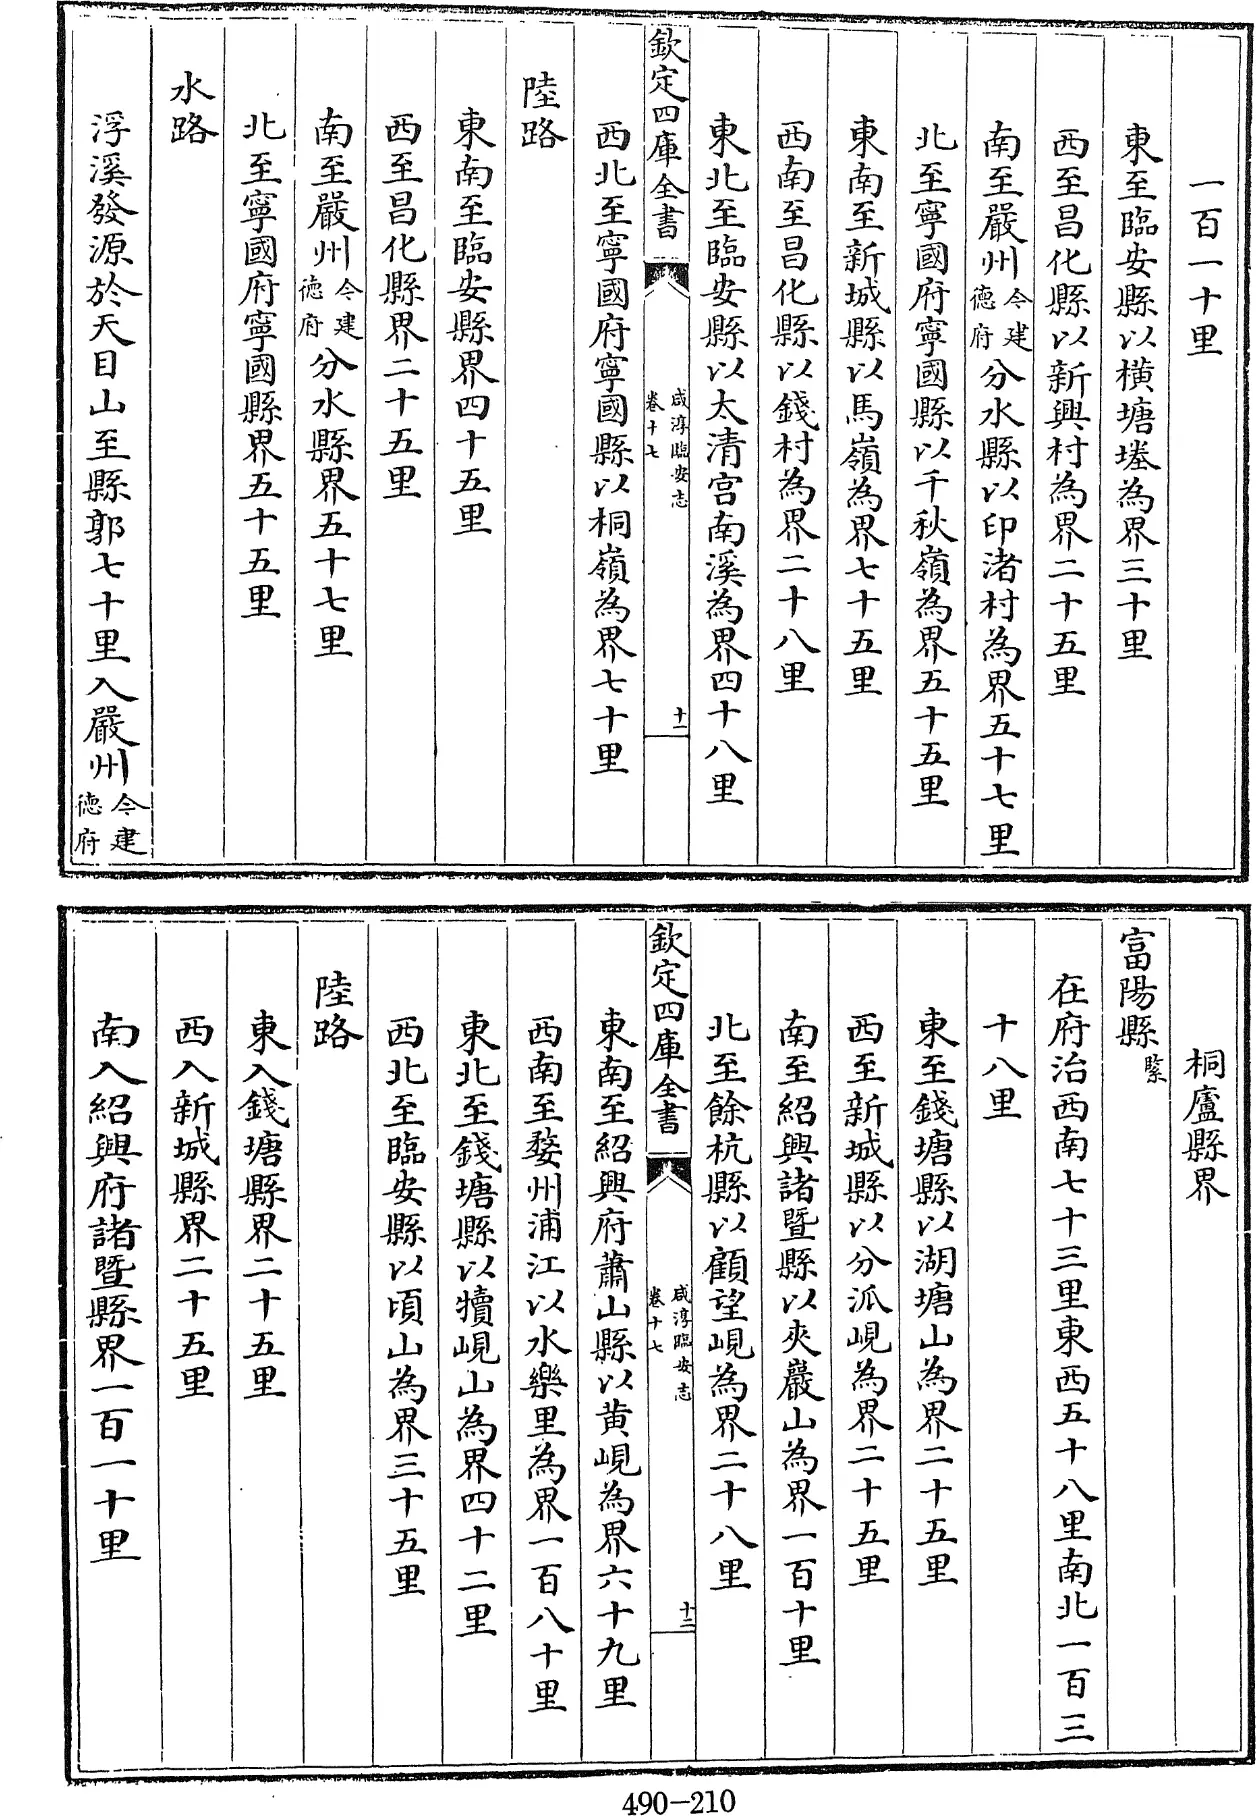 一百一十里
東至臨安縣以橫塘堘為界三十里
西至昌化縣以新興村為界二十五里
南至嚴州今建德府分水縣以印渚村為界五十七里
北至寧國府寧國縣以千秋嶺為界五十五里
東南至新城縣以馬嶺為界七十五里
西南至昌化縣以錢村為界二十八里
東北至臨安縣以太清宫南溪為界四十八里
欽定四庫全書
咸淳臨安志
卷十七
十一
西北至寧國府寧國縣以桐嶺為界七十里
陸路
東南至臨安縣界四十五里
西至昌化縣界二十五里
南至嚴州今建德府分水縣界五十七里
北至寧國府寧國縣界五十五里
水路
浮溪發源於天目山至縣郭七十里入嚴州今建德府
桐廬縣界
富陽縣緊
在府治西南七十三里東西五十八里南北一百三
十八里
東至錢塘縣以湖塘山為界二十五里
西至新城縣以分派峴為界二十五里
南至紹興諸暨縣以夾巖山為界一百十里
北至餘杭縣以顧望峴為界二十八里
欽定四庫全書
咸淳臨安志
卷十七
十二
東南至紹興府蕭山縣以黄峴為界六十九里
西南至婺州浦江以水樂里為界一百八十里
東北至錢塘縣以犢峴山為界四十二里
西北至臨安縣以頃山為界三十五里
陸路
東入錢塘縣界二十五里
西入新城縣界二十五里
南入紹興府諸暨縣界一百一十里
490-210